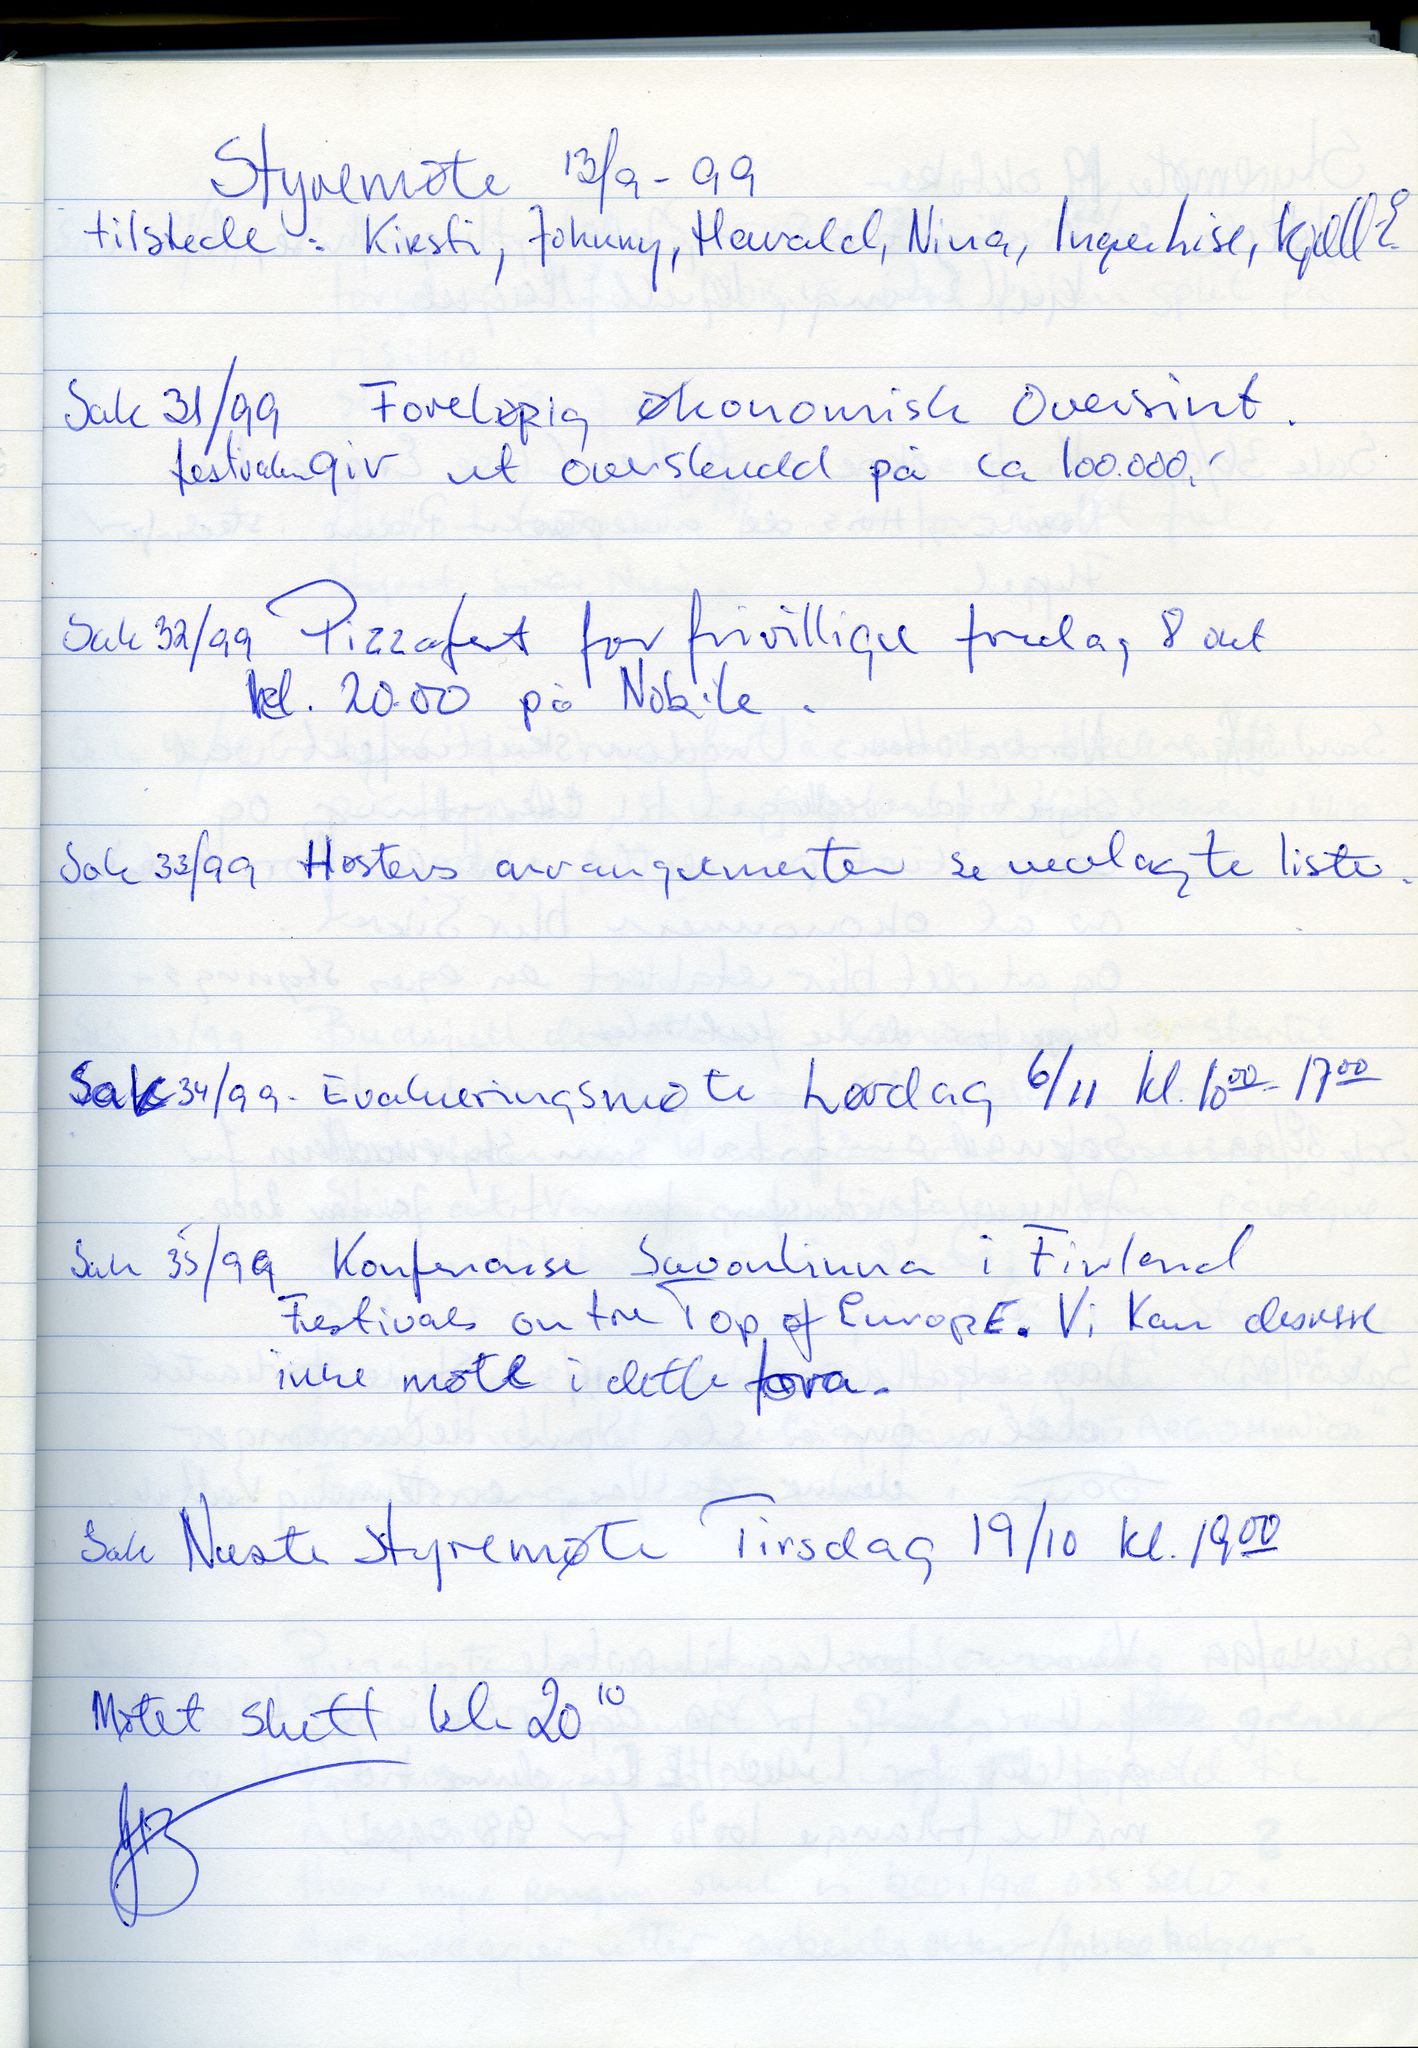 Styremøte 13/9-99
tilstede: Kirsti, Johnny, Harald, Nina, Inger Lise, Kjell E
Sak 31/99 Foreløpig økonomisk oversikt.
festivalen gir et overskudd på ca 100.000,-
Sak 32/99 Pizzafest for frivillige fredag 8 okt
kl. 20.00 på Nobile.
Sak 33/99 Høstens arrangementer se vedlagte liste.
Sak 34/99. Evalueringsmøte Lørdag 6/11 kl. 10 00 - 17 00
Sak 35/99 Konferanse Savonlinna i Finland
Festivals on the Top of Europe. Vi kan dessverre
ikke møte i dette fora.
Sak Neste styremøte Tirsdag 19/10 kl. 19 00
Møtet slutt kl. 20 10